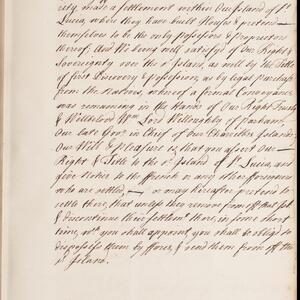 rity, made a settlement within Our Island of St.
Lucia, where they have built Houses & pretend
themselves to be the only Possessors & Proprietors
thereof; And We being well satisfyed of Our Right &
Sovereignty over the sd. Island, as well by the Title
of first Discovery & Possession, as by legal Purchase
from the Natives, whereof a formal Conveyance
was remaining in the Hands of Our Right Trusty
& Wellbelovd Wm. Lord Willoughby of Parham
Our late Govr. in Chief of Our Charibbee Islands;
Our Will & Pleasure is, that you assert Our
Right & Title to the sd. Island of St. Lucia, and
give Notice to the French or any other foreigners
who are settled, or may hereafter pretend to
settle there, that unless they remove from off that Isld.
& discontinue their settlemt. there, in some short
time, wch. you shall appoint, you shall be obliged to
disposess them by fforce, & send them from off the
sd. Island.